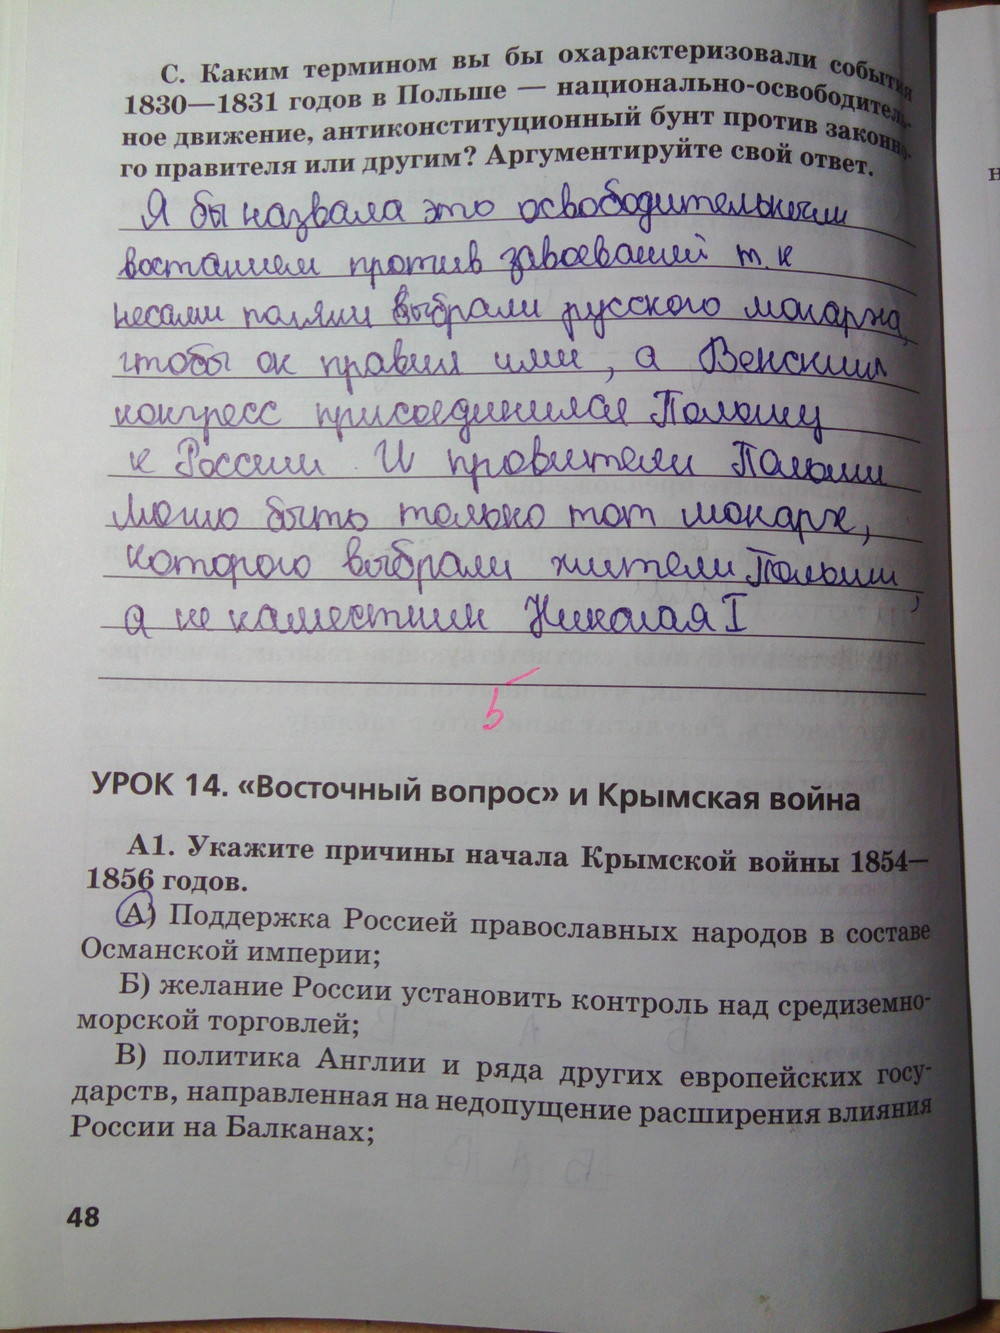 С. Каким термином вы бы охарактеризовали события
1830—1831 годов в Польше — национально-освободитель-
ное движение, антиконституционный бунт против законно-
го правителя или другим? Аргументируйте свой ответ.
Я бы назвала это освободительным
востанием против завоеваний т.к
несами поляки выбрали русского монарха,
чтобы он правил ими, а Венским
конгресс присоединился Польшу
к России. И правители Польши
могло быть только тот монарх,
которого выбрали жители Польши,
а не наместник Николая I
5
УРОК 14. «Восточный вопрос» и Крымская война
А1. Укажите причины начала Крымской войны 1854—
1856 годов.
А) Поддержка Россией православных народов в составе
Османской империи;
Б) желание России установить контроль над средиземно-
морской торговлей;
В) политика Англии и ряда других европейских госу-
дарств, направленная на недопущение расширения влияния
России на Балканах;
48
н